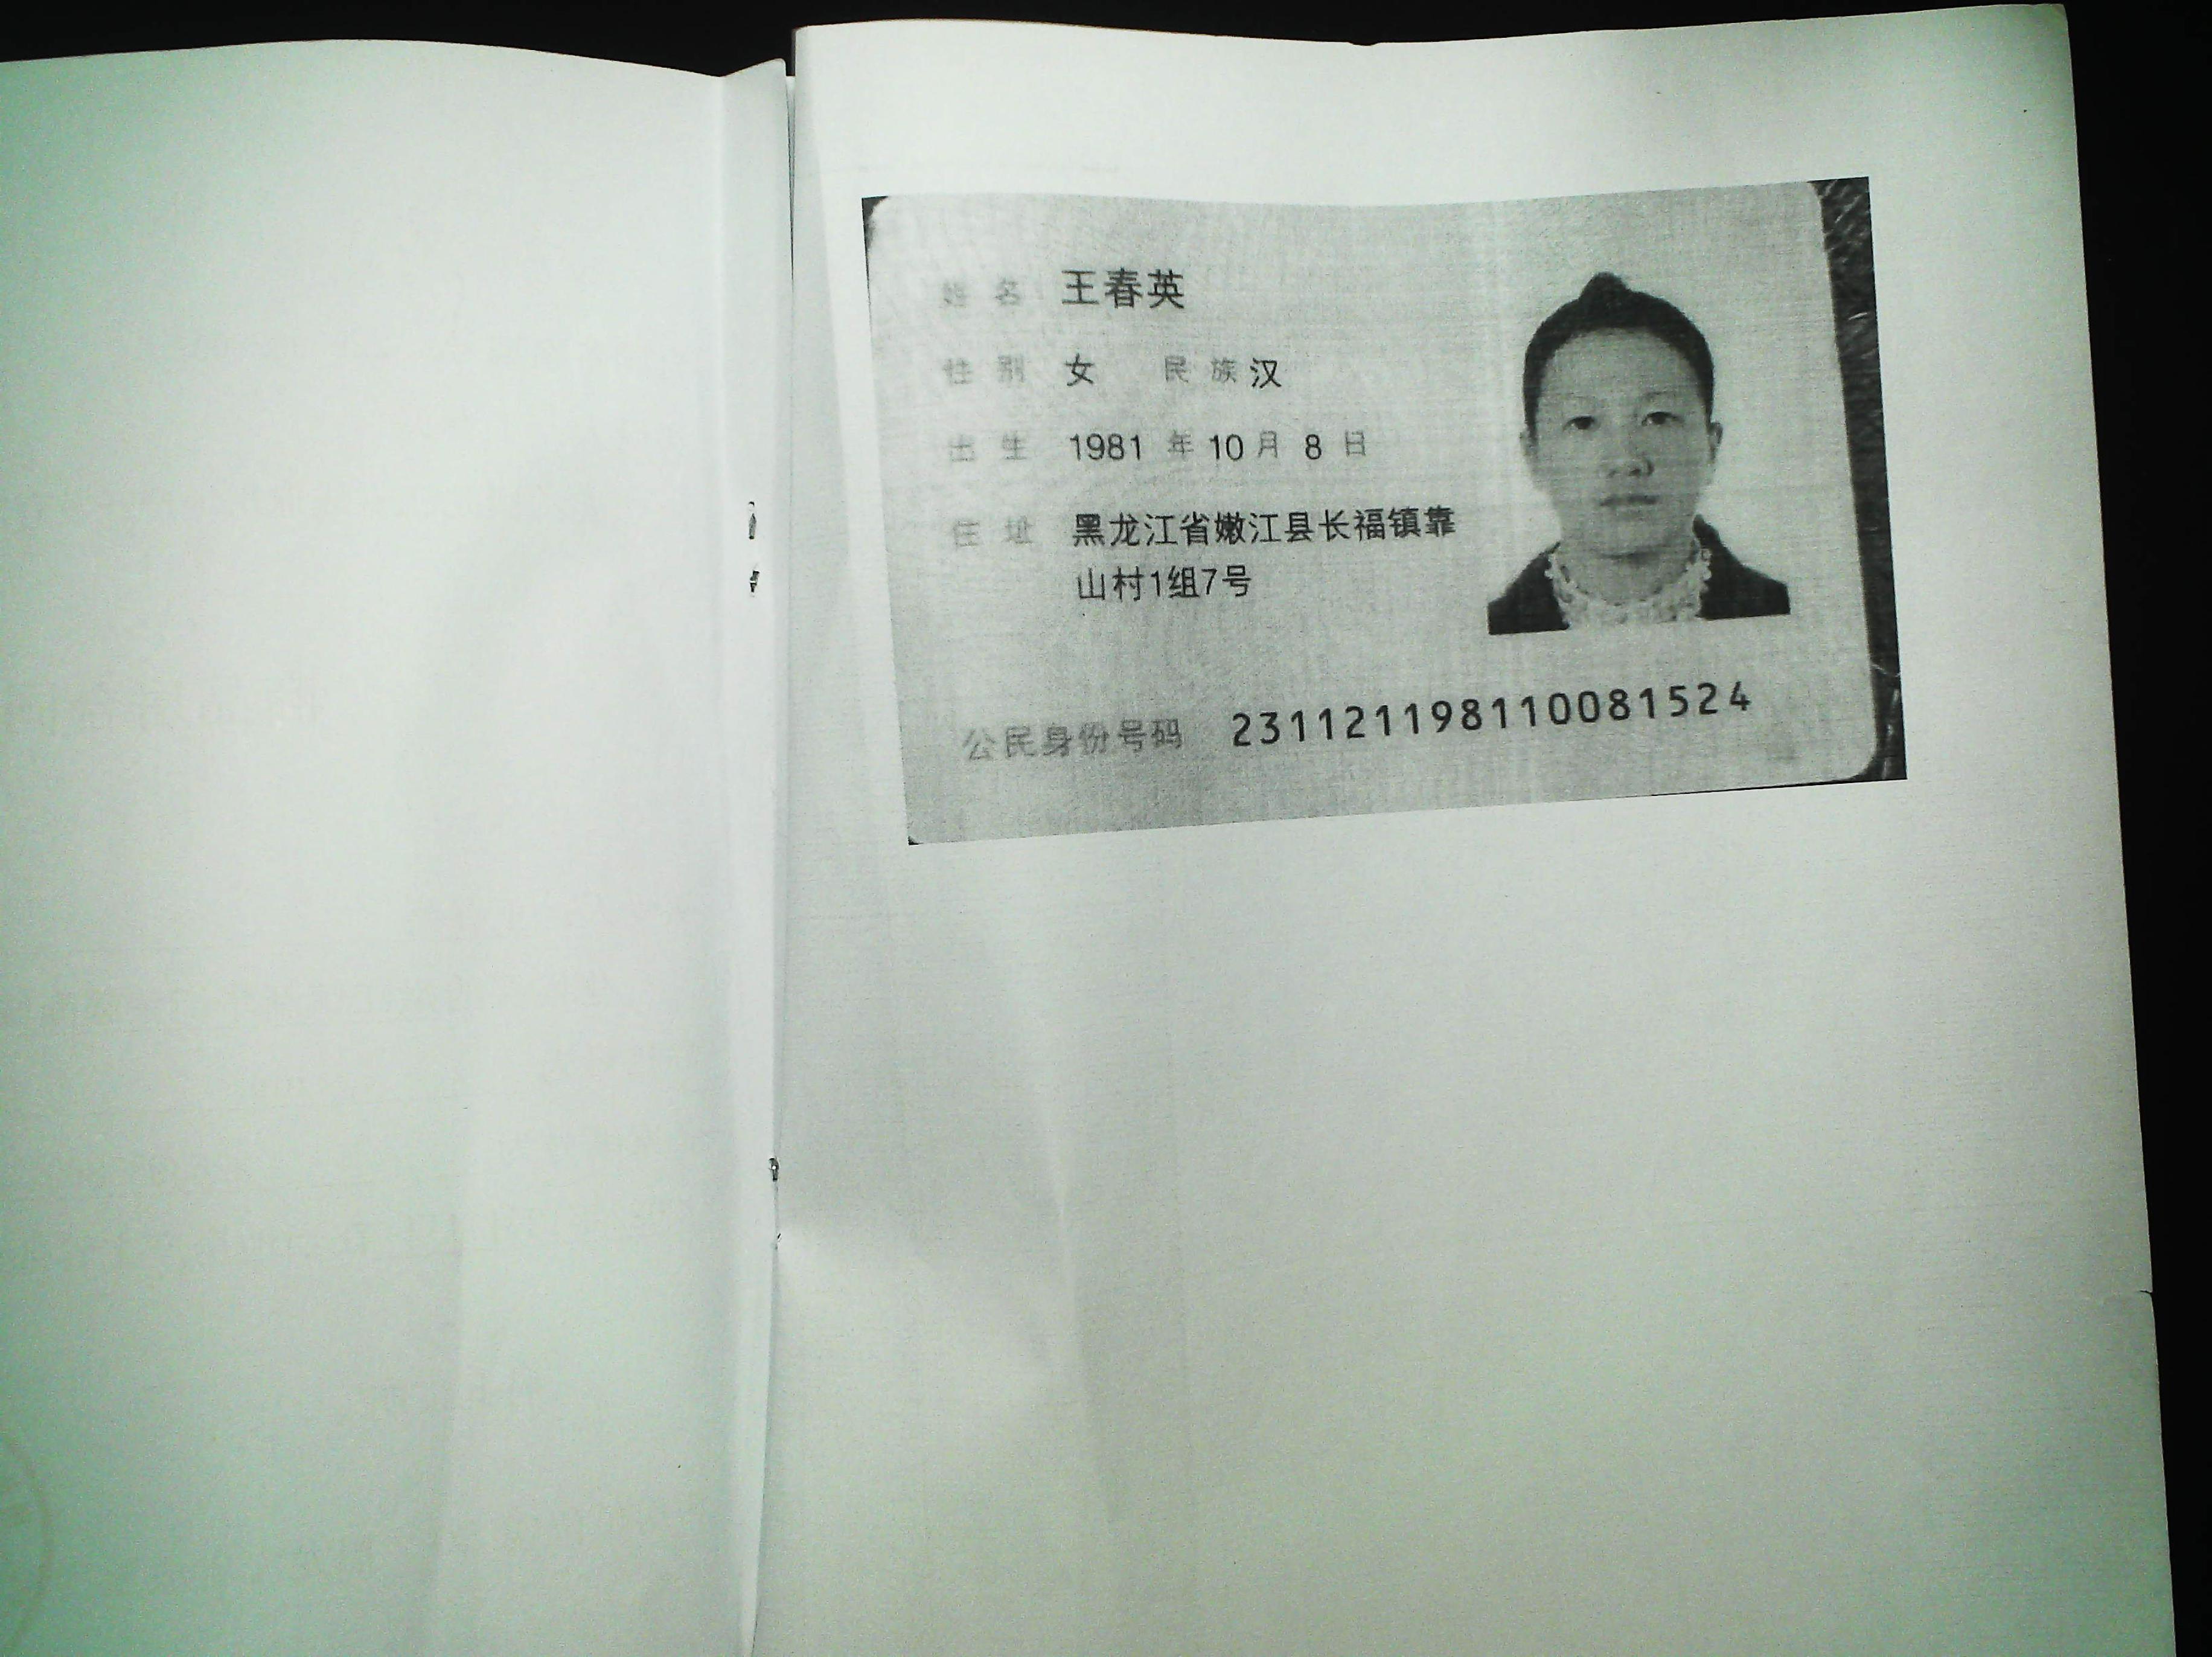 姓名 王春英
性别 女 民族 汉
出生 1981 年 10 月 8 日
住址 黑龙江省嫩江县长福镇靠
山村1组7号
公民身份号码 231121198110081524